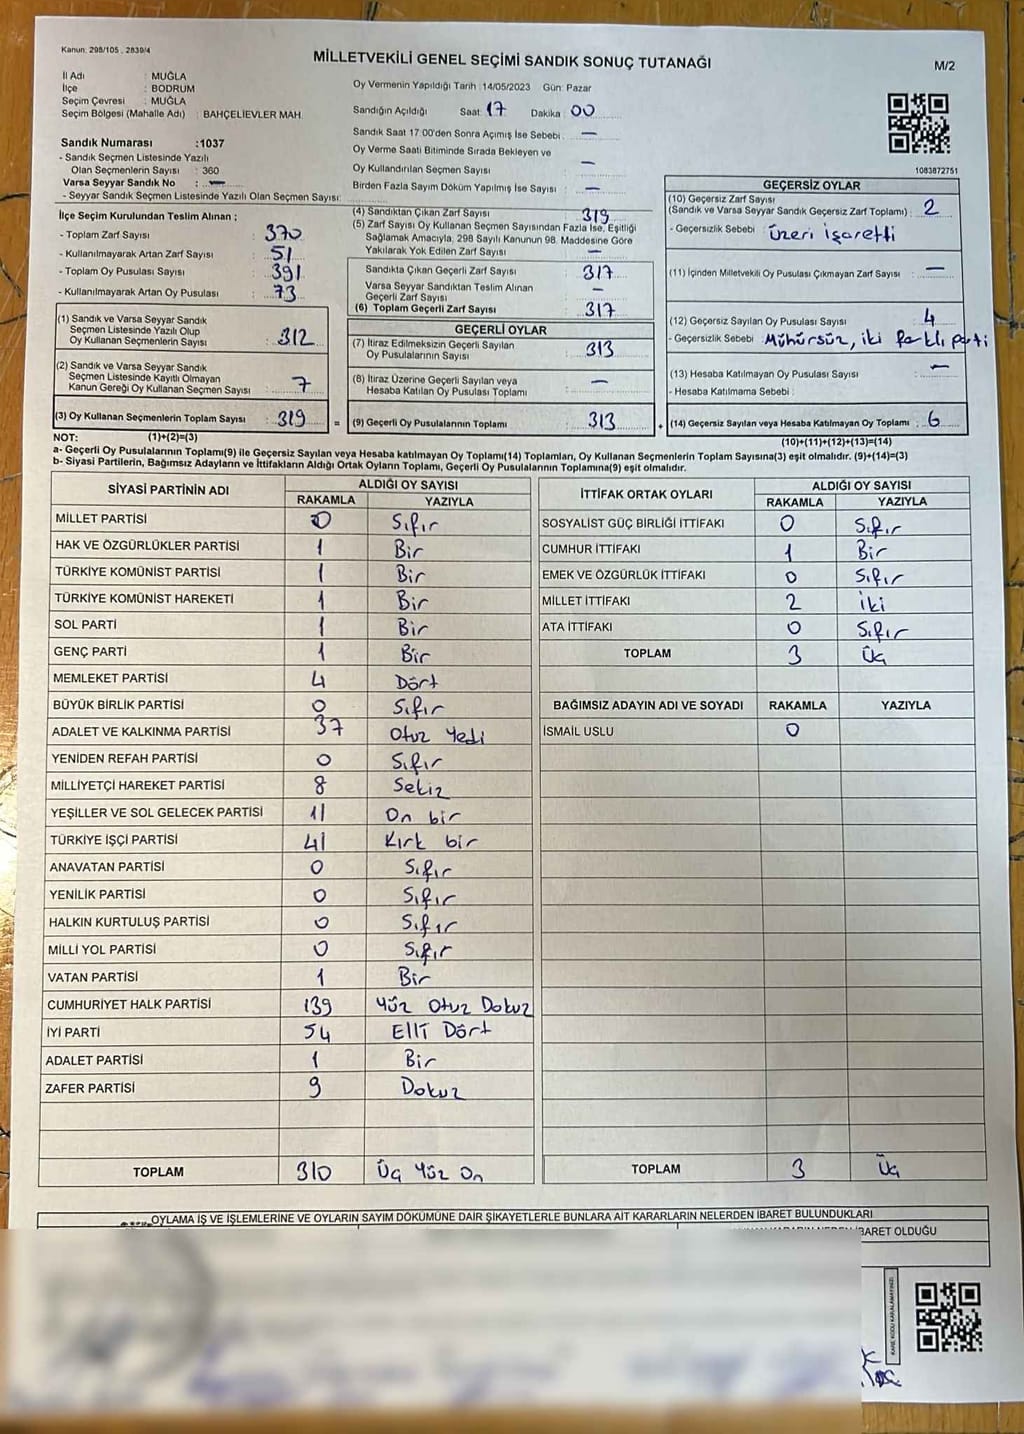 Kanun: 298/105 , 2839/4
MİLLETVEKİLİ GENEL SEÇİMİ SANDIK SONUÇ TUTANAĞI
M/2
İl Adı : MUĞLA
İlçe : BODRUM
Seçim Çevresi : MUĞLA
Seçim Bölgesi (Mahalle Adı) : BAHÇELİEVLER MAH.
Oy Vermenin Yapıldığı Tarih :14/05/2023 Gün: Pazar
Sandığın Açıldığı Saat: 17 Dakika : 00
Sandık Saat 17:00'den Sonra Açımış İse Sebebi : —
Oy Verme Saati Bitiminde Sırada Bekleyen ve
Oy Kullandırılan Seçmen Sayısı : —
Birden Fazla Sayım Döküm Yapılmış İse Sayısı : —
1083872751
Sandık Numarası :1037
- Sandık Seçmen Listesinde Yazılı
Olan Seçmenlerin Sayısı : 360
Varsa Seyyar Sandık No : —
- Seyyar Sandık Seçmen Listesinde Yazılı Olan Seçmen Sayısı:
İlçe Seçim Kurulundan Teslim Alınan ;
- Toplam Zarf Sayısı : 370
- Kullanılmayarak Artan Zarf Sayısı : 51
- Toplam Oy Pusulası Sayısı : 391
- Kullanılmayarak Artan Oy Pusulası : 73
(1) Sandık ve Varsa Seyyar Sandık
Seçmen Listesinde Yazılı Olup
Oy Kullanan Seçmenlerin Sayısı : 312
(2) Sandık ve Varsa Seyyar Sandık
Seçmen Listesinde Kayıtlı Olmayan
Kanun Gereği Oy Kullanan Seçmen Sayısı : 7
(3) Oy Kullanan Seçmenlerin Toplam Sayısı : 319
(4) Sandıktan Çıkan Zarf Sayısı : 319
(5) Zarf Sayısı Oy Kullanan Seçmen Sayısından Fazla İse, Eşitliği
Sağlamak Amacıyla, 298 Sayılı Kanunun 98. Maddesine Göre
Yakılarak Yok Edilen Zarf Sayısı : —
Sandıkta Çıkan Geçerli Zarf Sayısı : 317
Varsa Seyyar Sandıktan Teslim Alınan
Geçerli Zarf Sayısı : —
(6) Toplam Geçerli Zarf Sayısı : 317
GEÇERLİ OYLAR
(7) İtiraz Edilmeksizin Geçerli Sayılan
Oy Pusulalarının Sayısı : 313
(8) İtiraz Üzerine Geçerli Sayılan veya
Hesaba Katılan Oy Pusulası Toplamı : —
= (9) Geçerli Oy Pusulalarının Toplamı : 313
GEÇERSİZ OYLAR
(10) Geçersiz Zarf Sayısı
(Sandık ve Varsa Seyyar Sandık Geçersiz Zarf Toplamı) : 2
- Geçersizlik Sebebi : Üzeri işaretti
(11) İçinden Milletvekili Oy Pusulası Çıkmayan Zarf Sayısı : —
(12) Geçersiz Sayılan Oy Pusulası Sayısı : 4
- Geçersizlik Sebebi : Mühürsüz, iki farklı parti
(13) Hesaba Katılmayan Oy Pusulası Sayısı : —
- Hesaba Katılmama Sebebi :
+ (14) Geçersiz Sayılan veya Hesaba Katılmayan Oy Toplamı : 6
NOT: (1)+(2)=(3)
(10)+(11)+(12)+(13)=(14)
a- Geçerli Oy Pusulalarının Toplamı(9) ile Geçersiz Sayılan veya Hesaba katılmayan Oy Toplamı(14) Toplamları, Oy Kullanan Seçmenlerin Toplam Sayısına(3) eşit olmalıdır. (9)+(14)=(3)
b- Siyasi Partilerin, Bağımsız Adayların ve İttifakların Aldığı Ortak Oyların Toplamı, Geçerli Oy Pusulalarının Toplamına(9) eşit olmalıdır.
SİYASİ PARTİNİN ADI ALDIĞI OY SAYISI
RAKAMLA YAZIYLA
MİLLET PARTİSİ 0 Sıfır
HAK VE ÖZGÜRLÜKLER PARTİSİ 1 Bir
TÜRKİYE KOMÜNİST PARTİSİ 1 Bir
TÜRKİYE KOMÜNİST HAREKETİ 1 Bir
SOL PARTİ 1 Bir
GENÇ PARTİ 1 Bir
MEMLEKET PARTİSİ 4 Dört
BÜYÜK BİRLİK PARTİSİ 0 Sıfır
ADALET VE KALKINMA PARTİSİ 37 Otuz Yedi
YENİDEN REFAH PARTİSİ 0 Sıfır
MİLLİYETÇİ HAREKET PARTİSİ 8 Sekiz
YEŞİLLER VE SOL GELECEK PARTİSİ 11 On bir
TÜRKİYE İŞÇİ PARTİSİ 41 Kırk bir
ANAVATAN PARTİSİ 0 Sıfır
YENİLİK PARTİSİ 0 Sıfır
HALKIN KURTULUŞ PARTİSİ 0 Sıfır
MİLLİ YOL PARTİSİ 0 Sıfır
VATAN PARTİSİ 1 Bir
CUMHURİYET HALK PARTİSİ 139 Yüz Otuz Dokuz
İYİ PARTİ 54 Elli Dört
ADALET PARTİSİ 1 Bir
ZAFER PARTİSİ 9 Dokuz
TOPLAM 310 Üç Yüz On
İTTİFAK ORTAK OYLARI ALDIĞI OY SAYISI
RAKAMLA YAZIYLA
SOSYALİST GÜÇ BİRLİĞİ İTTİFAKI 0 Sıfır
CUMHUR İTTİFAKI 1 Bir
EMEK VE ÖZGÜRLÜK İTTİFAKI 0 Sıfır
MİLLET İTTİFAKI 2 İki
ATA İTTİFAKI 0 Sıfır
TOPLAM 3 Üç
BAĞIMSIZ ADAYIN ADI VE SOYADI RAKAMLA YAZIYLA
İSMAİL USLU 0
TOPLAM 3 Üç
OYLAMA İŞ VE İŞLEMLERİNE VE OYLARIN SAYIM DÖKÜMÜNE DAİR ŞİKAYETLERLE BUNLARA AİT KARARLARIN NELERDEN İBARET BULUNDUKLARI
İBARET OLDUĞU
KARE KODU KARALAMAYINIZ!